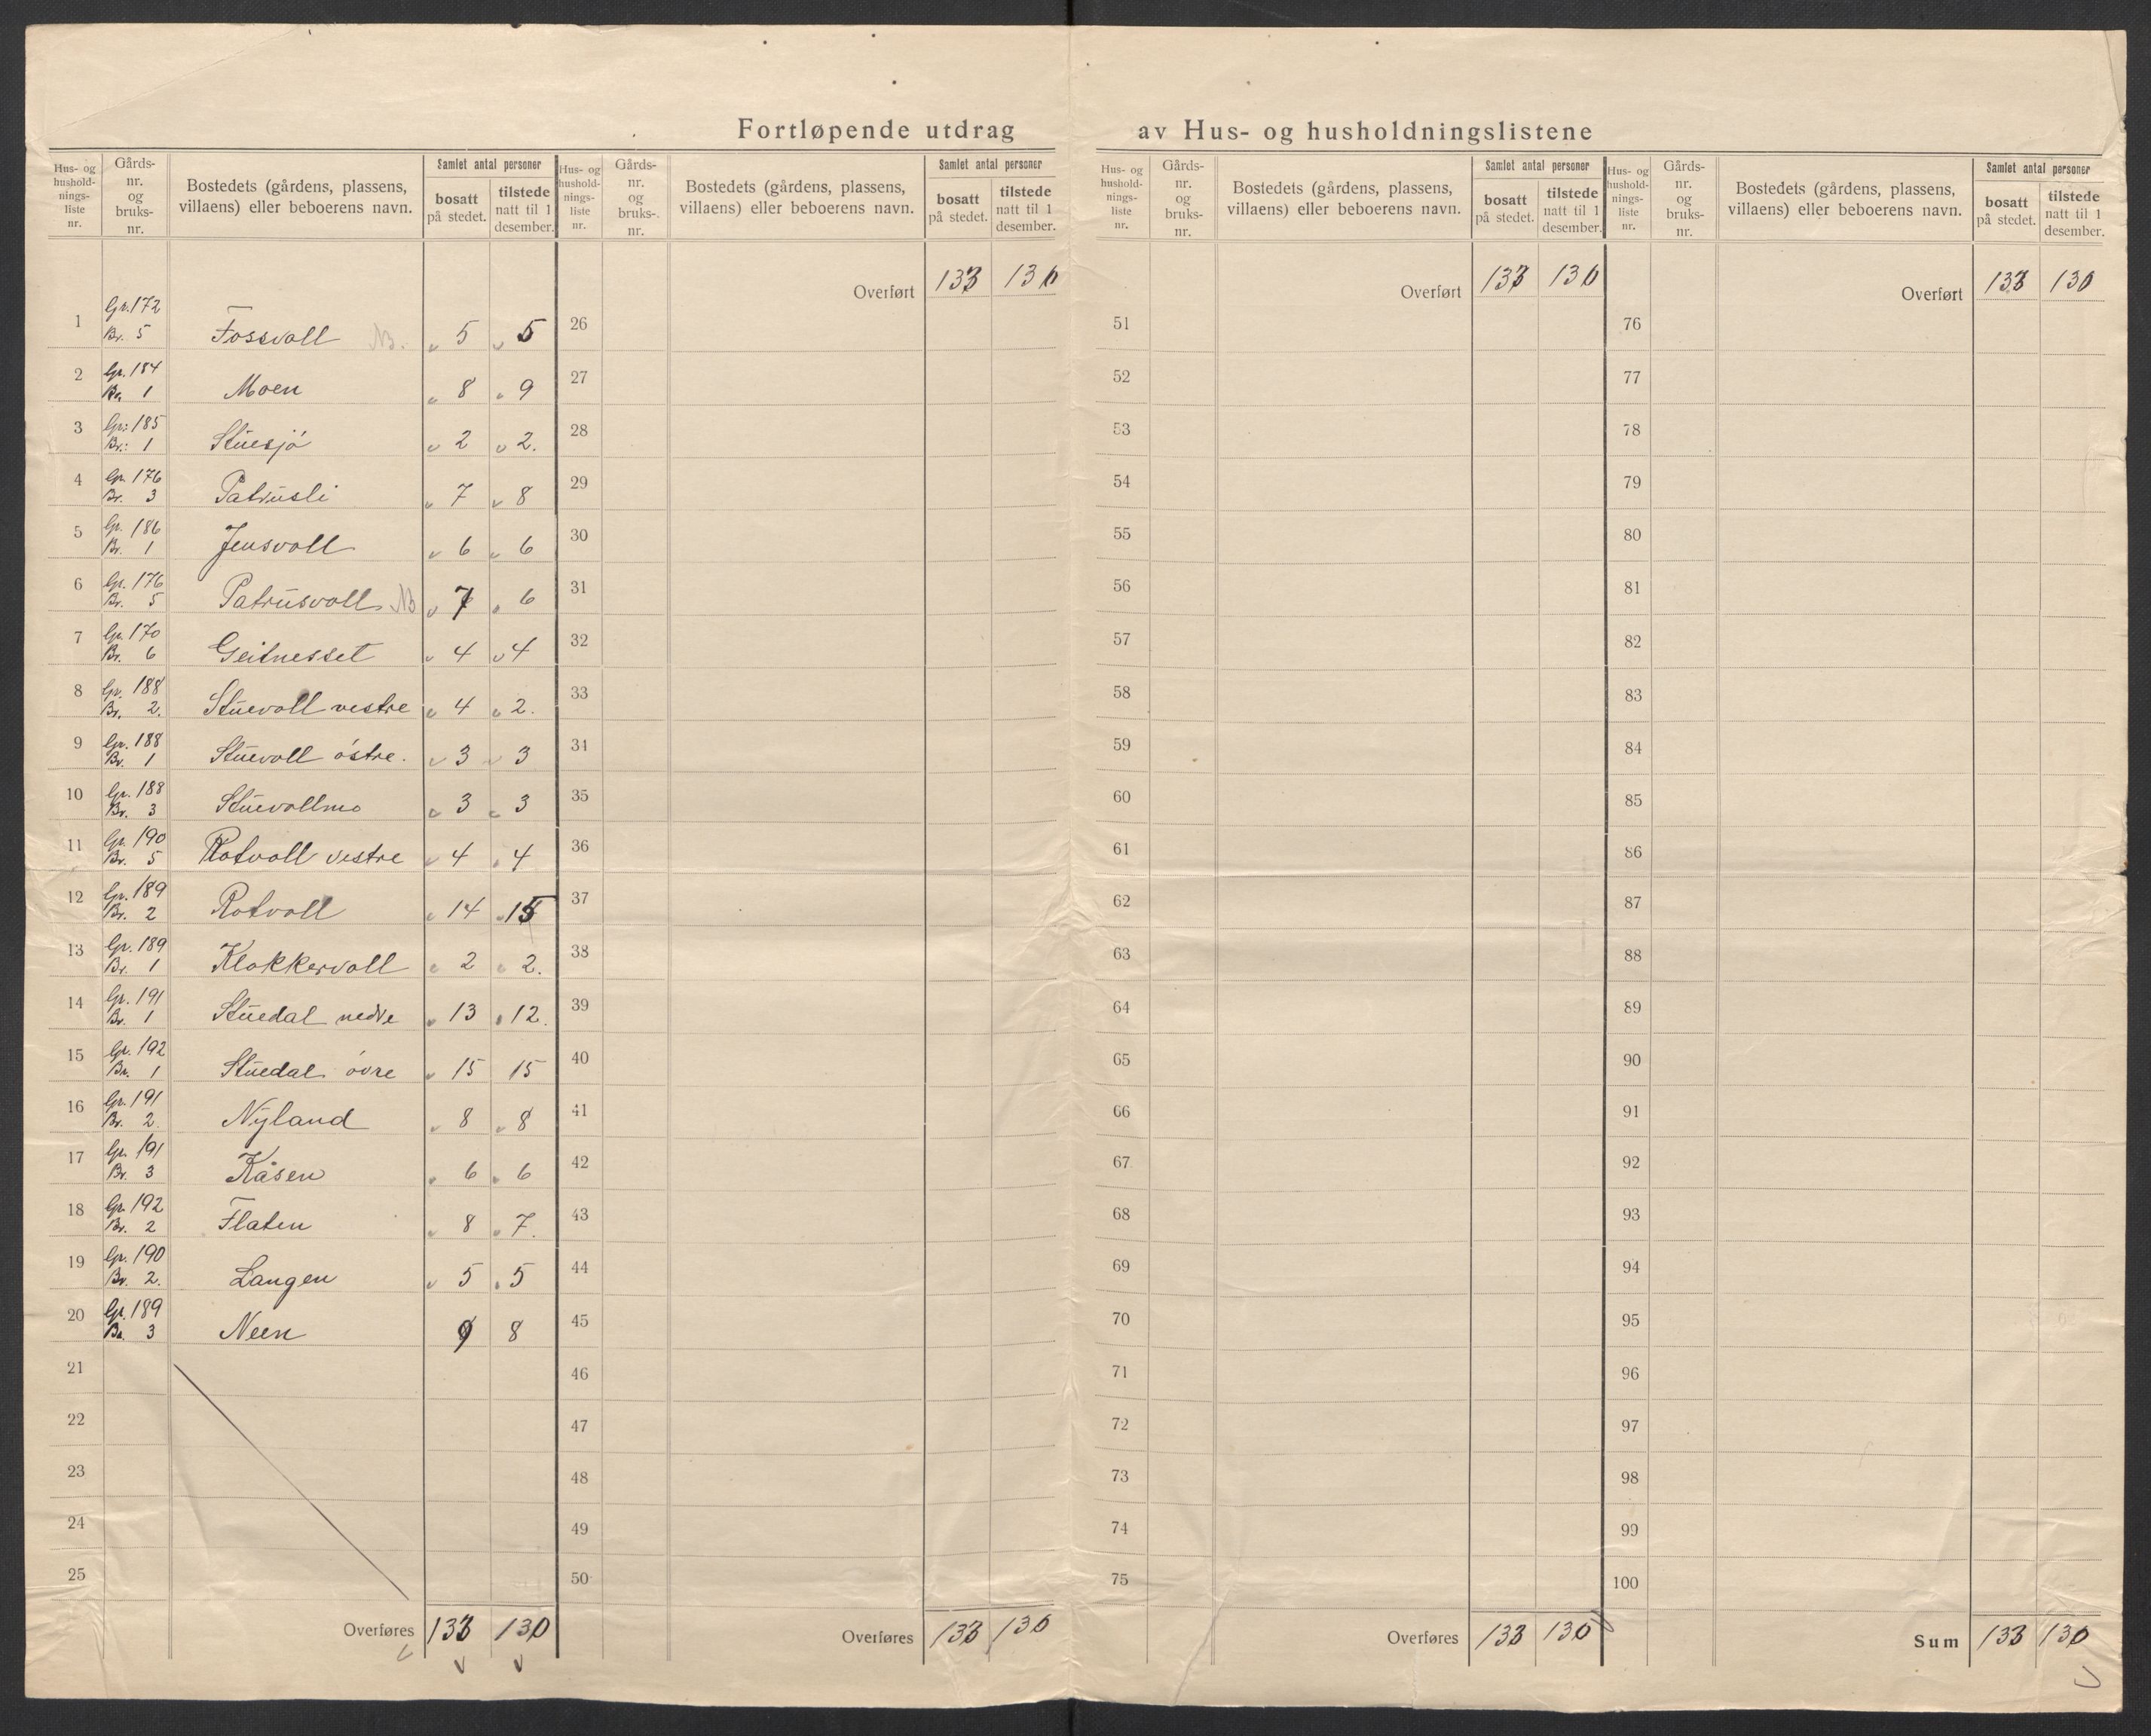 Fortløpende utdrag av Hus- og husholdningslistene
Hus- og hushold-nings-liste nr. | Gårds-nr. og bruks-nr. | Bostedets (gårdens, plassens, villaens) eller beboerens navn. | Samlet antal personer | bosatt på stedet. | tilstede natt til 1 desember.
1 | Gr. 172 Br. 5 | Fossvoll NB. | 5 | 5
2 | Gr. 184 Br. 1 | Moen | 8 | 9
3 | Gr: 185 Br.: 1 | Stuesjó | 2 | 2.
4 | Gr. 176 Br. 3 | Patrusli | 7 | 8
5 | Gr. 186 Br. 1 | Jensvoll | 6 | 6
6 | Gr. 176 Br. 5 | Patrusvoll NB | 7 | 6
7 | Gr. 170 Br. 6 | Geitnesset | 4 | 4
8 | Gr. 188 Br. 2. | Stuevoll vestre | 4 | 2.
9 | Gr. 188 Br. 1 | Stuevoll óstre. | 3 | 3
10 | Gr. 188 Br. 3 | Stuevollmo | 3 | 3
11 | Gr. 190 Br. 5 | Rotvoll vestre | 4 | 4
12 | Gr. 189 Br. 2 | Rotvoll | 14 | 15
13 | Gr. 189 Br. 1 | Klokkervoll | 2 | 2.
14 | Gr. 191 Br. 1 | Stuedal nedre | 13 | 12.
15 | Gr. 192 Br. 1 | Stuedal óvre | 15 | 15
16 | Gr. 191 Br. 2. | Nyland | 8 | 8
17 | Gr. 191 Br. 3 | Kåsen | 6 | 6
18 | Gr. 192 Br. 2 | Flaten | 8 | 7.
19 | Gr. 190 Br. 2. | Langen | 5 | 5
20 | Gr. 189 Br. 3 | Neen | 9 | 8
21
22
23
24
25
Overføres 133 130
Hus- og hushold-nings-liste nr. | Gårds-nr. og bruks-nr. | Bostedets (gårdens, plassens, villaens) eller beboerens navn. | Samlet antal personer | bosatt på stedet. | tilstede natt til 1 desember.
Overført 133 130
26
27
28
29
30
31
32
33
34
35
36
37
38
39
40
41
42
43
44
45
46
47
48
49
50
Overføres 133 130
Hus- og hushold-nings-liste nr. | Gårds-nr. og bruks-nr. | Bostedets (gårdens, plassens, villaens) eller beboerens navn. | Samlet antal personer | bosatt på stedet. | tilstede natt til 1 desember.
Overført 133 130
51
52
53
54
55
56
57
58
59
60
61
62
63
64
65
66
67
68
69
70
71
72
73
74
75
Overføres 133 130
Hus- og hushold-nings-liste nr. | Gårds-nr. og bruks-nr. | Bostedets (gårdens, plassens, villaens) eller beboerens navn. | Samlet antal personer | bosatt på stedet. | tilstede natt til 1 desember.
Overført 133 130
76
77
78
79
80
81
82
83
84
85
86
87
88
89
90
91
92
93
94
95
96
97
98
99
100
Sum 133 130